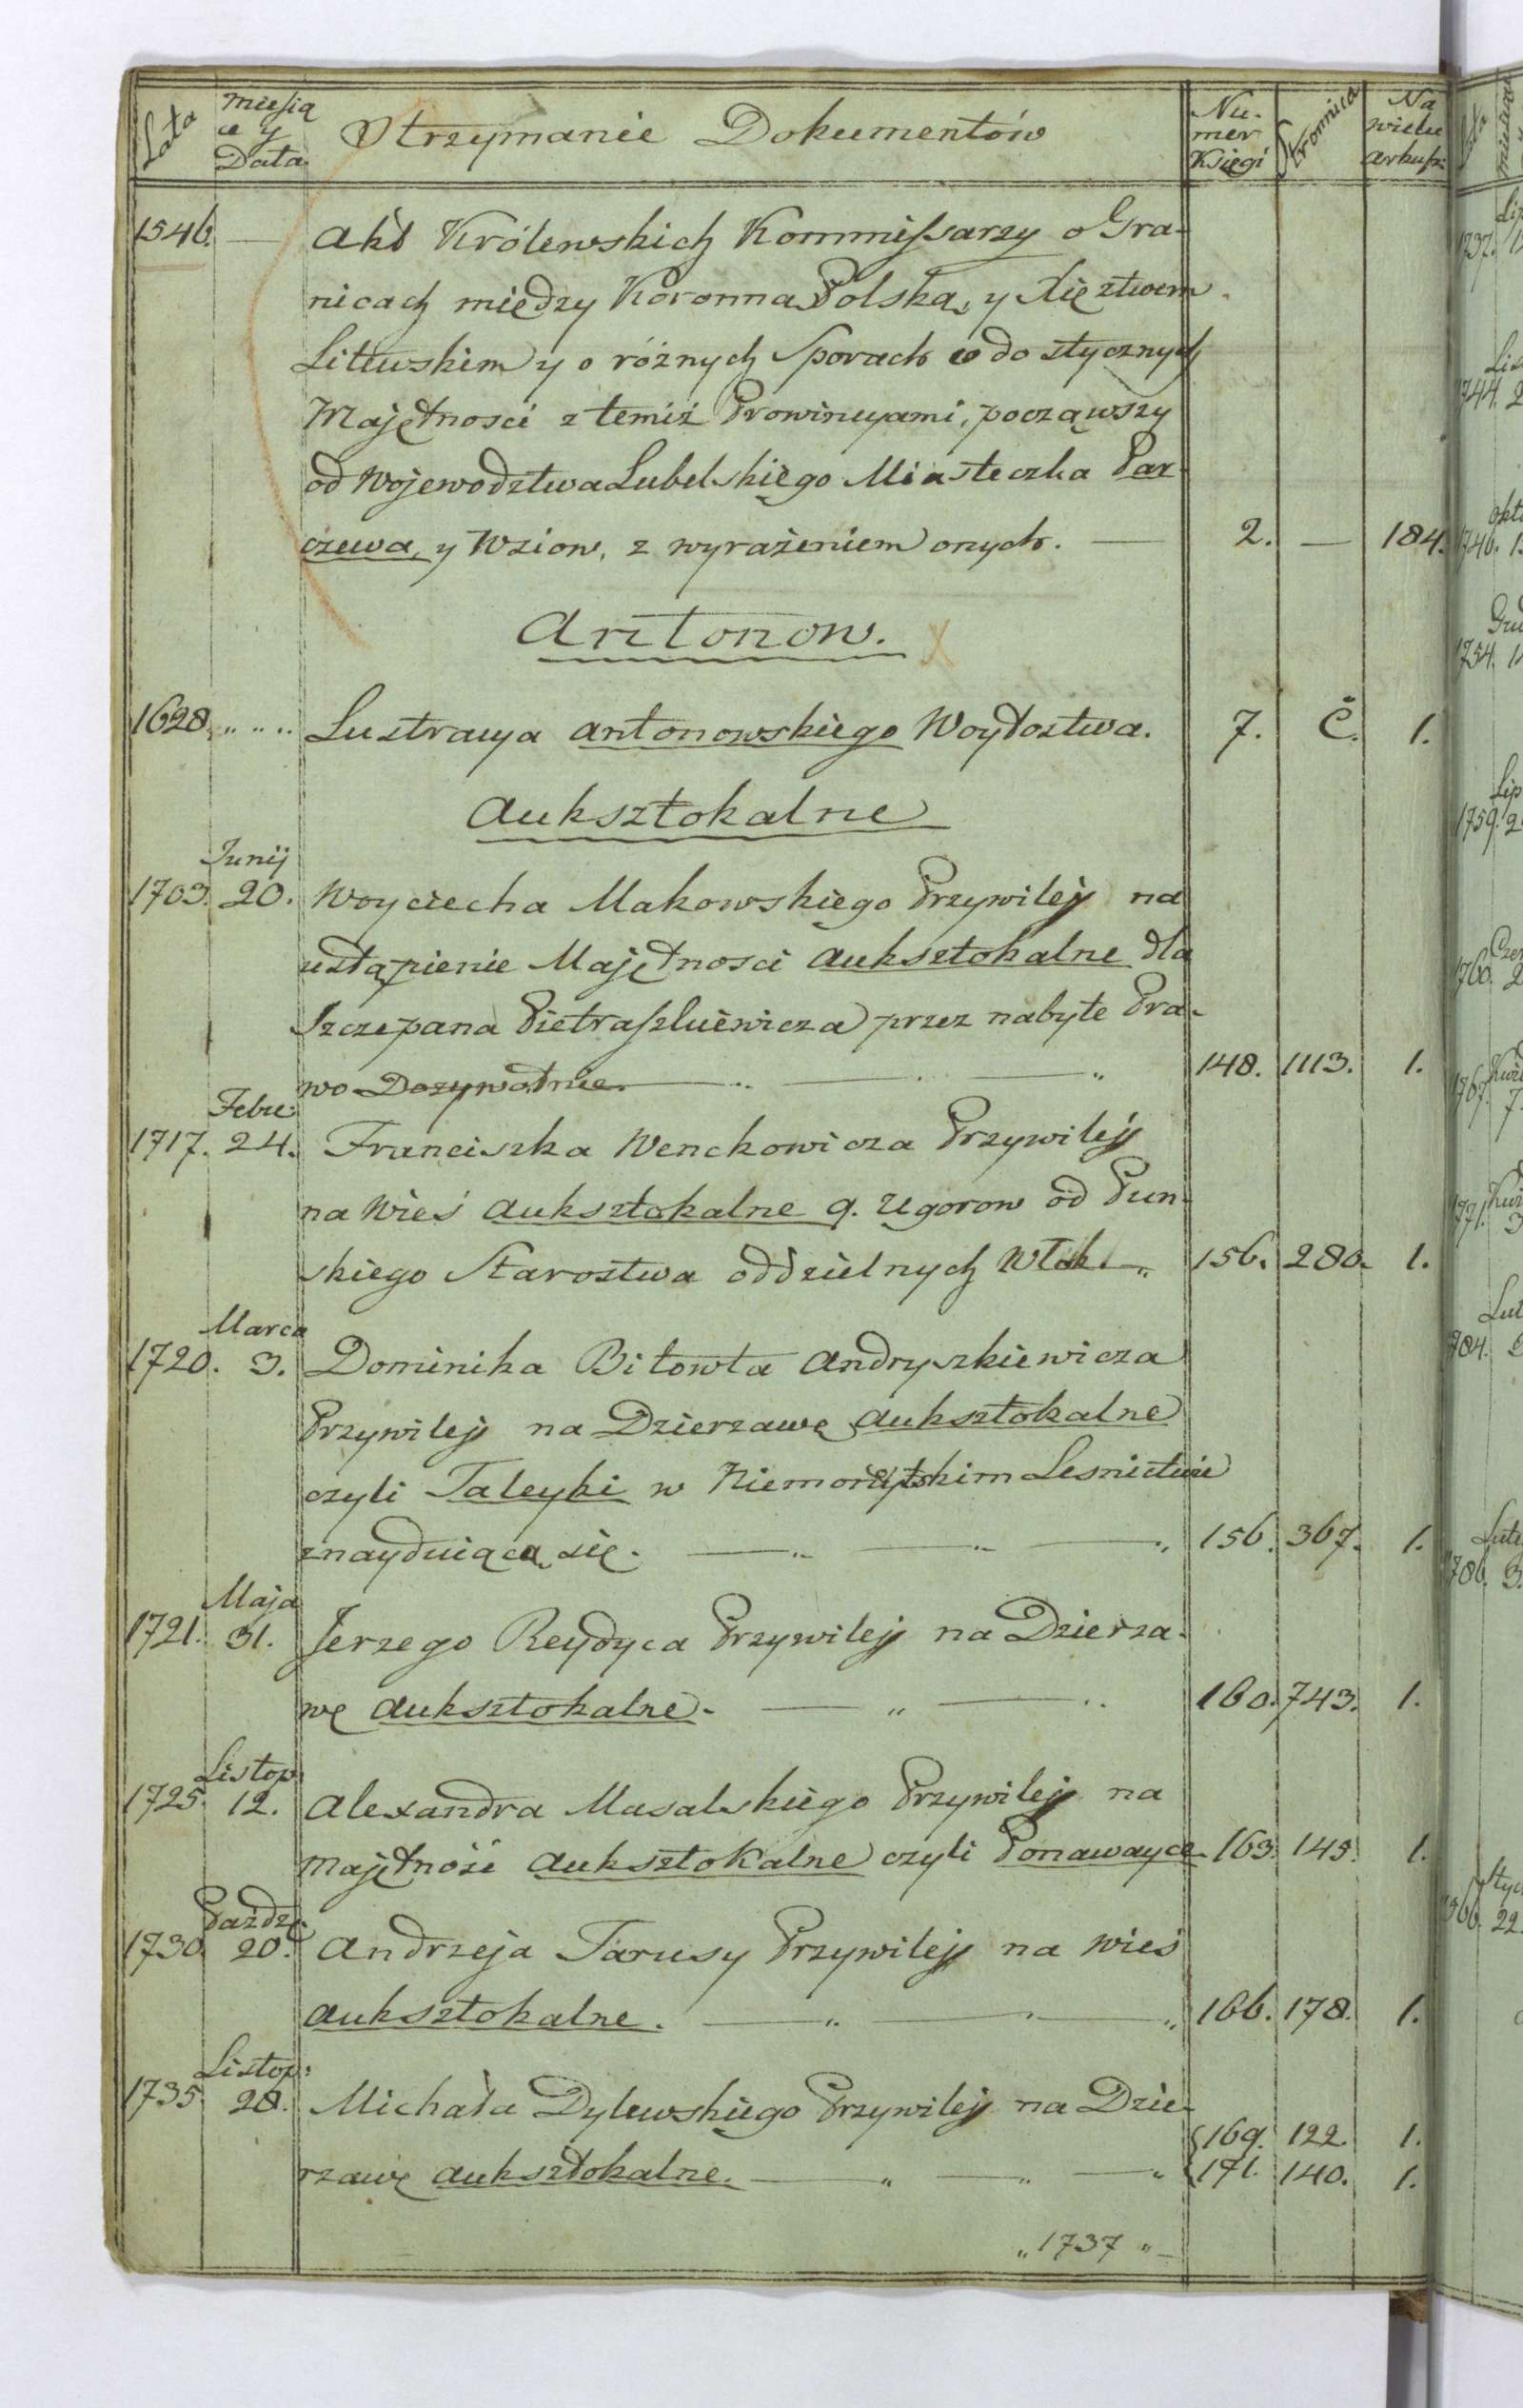 Lata
miesią
ce y
Data
Otrzymanie Dokumentów
Nu-
mer
Księgi
Stronnica
Na
wielu
arkusz:
1546. — Akt Królewskich Kommissarzy o Gra-
nicach między Koronną Polską, y Xięztwem
Litewskim y o różnych Sporach do stycznych
Majętnosci z temiż Prowincyami, począwszy
od Wojewodztwa Lubelskiego Miasteczka Par-
czewa, y Wzion, z wyrażeniem onych. — 2. — 184.
Antonow.
1628. Lustracya Antonowskiego Woytostwa. 7. C. 1.
Auksztokalne
Junij
1703. 20. Woyciecha Makowskiego Przywilej na
ustąpienie Majętnosci Auksztokalne dla
Szczepana Pietraszkiewicza przez nabyte Pra-
wo Dozywotnie. 148. 1113. 1.
Febr:
1717. 24. Franciszka Wenckowicza Przywilej
na Wieś Auksztokalne 9. Ugorow od Pun-
skiego Starostwa oddzielnych Włok 156. 280. 1.
Marca
1720. 3. Dominika Bitowta Andryszkiewicza
Przywilej na Dzierzawę Auksztokalne
czyli Taleyki w Lesnictwie
znayduiącą się. 156. 367. 1.
Maja
1721. 31. Jerzego Reydyca Przywilej na Dzierza-
wę Auksztokalne. 160. 743. 1.
Listop:
1725. 12. Alexandra Masalskiego Przywilej na
Majętność Auksztokalne czyli Ponawayce 163. 145. 1.
Paźdz:
1730. 20. Andrzeja Tarusy Przywilej na wieś
Auksztokalne. 166. 178. 1.
Listop:
1735. 28. Michała Dylewskiego Przywilej na Dzie-
169. 122. 1.
rzawę Auksztokalne. 171. 140. 1.
„1737„